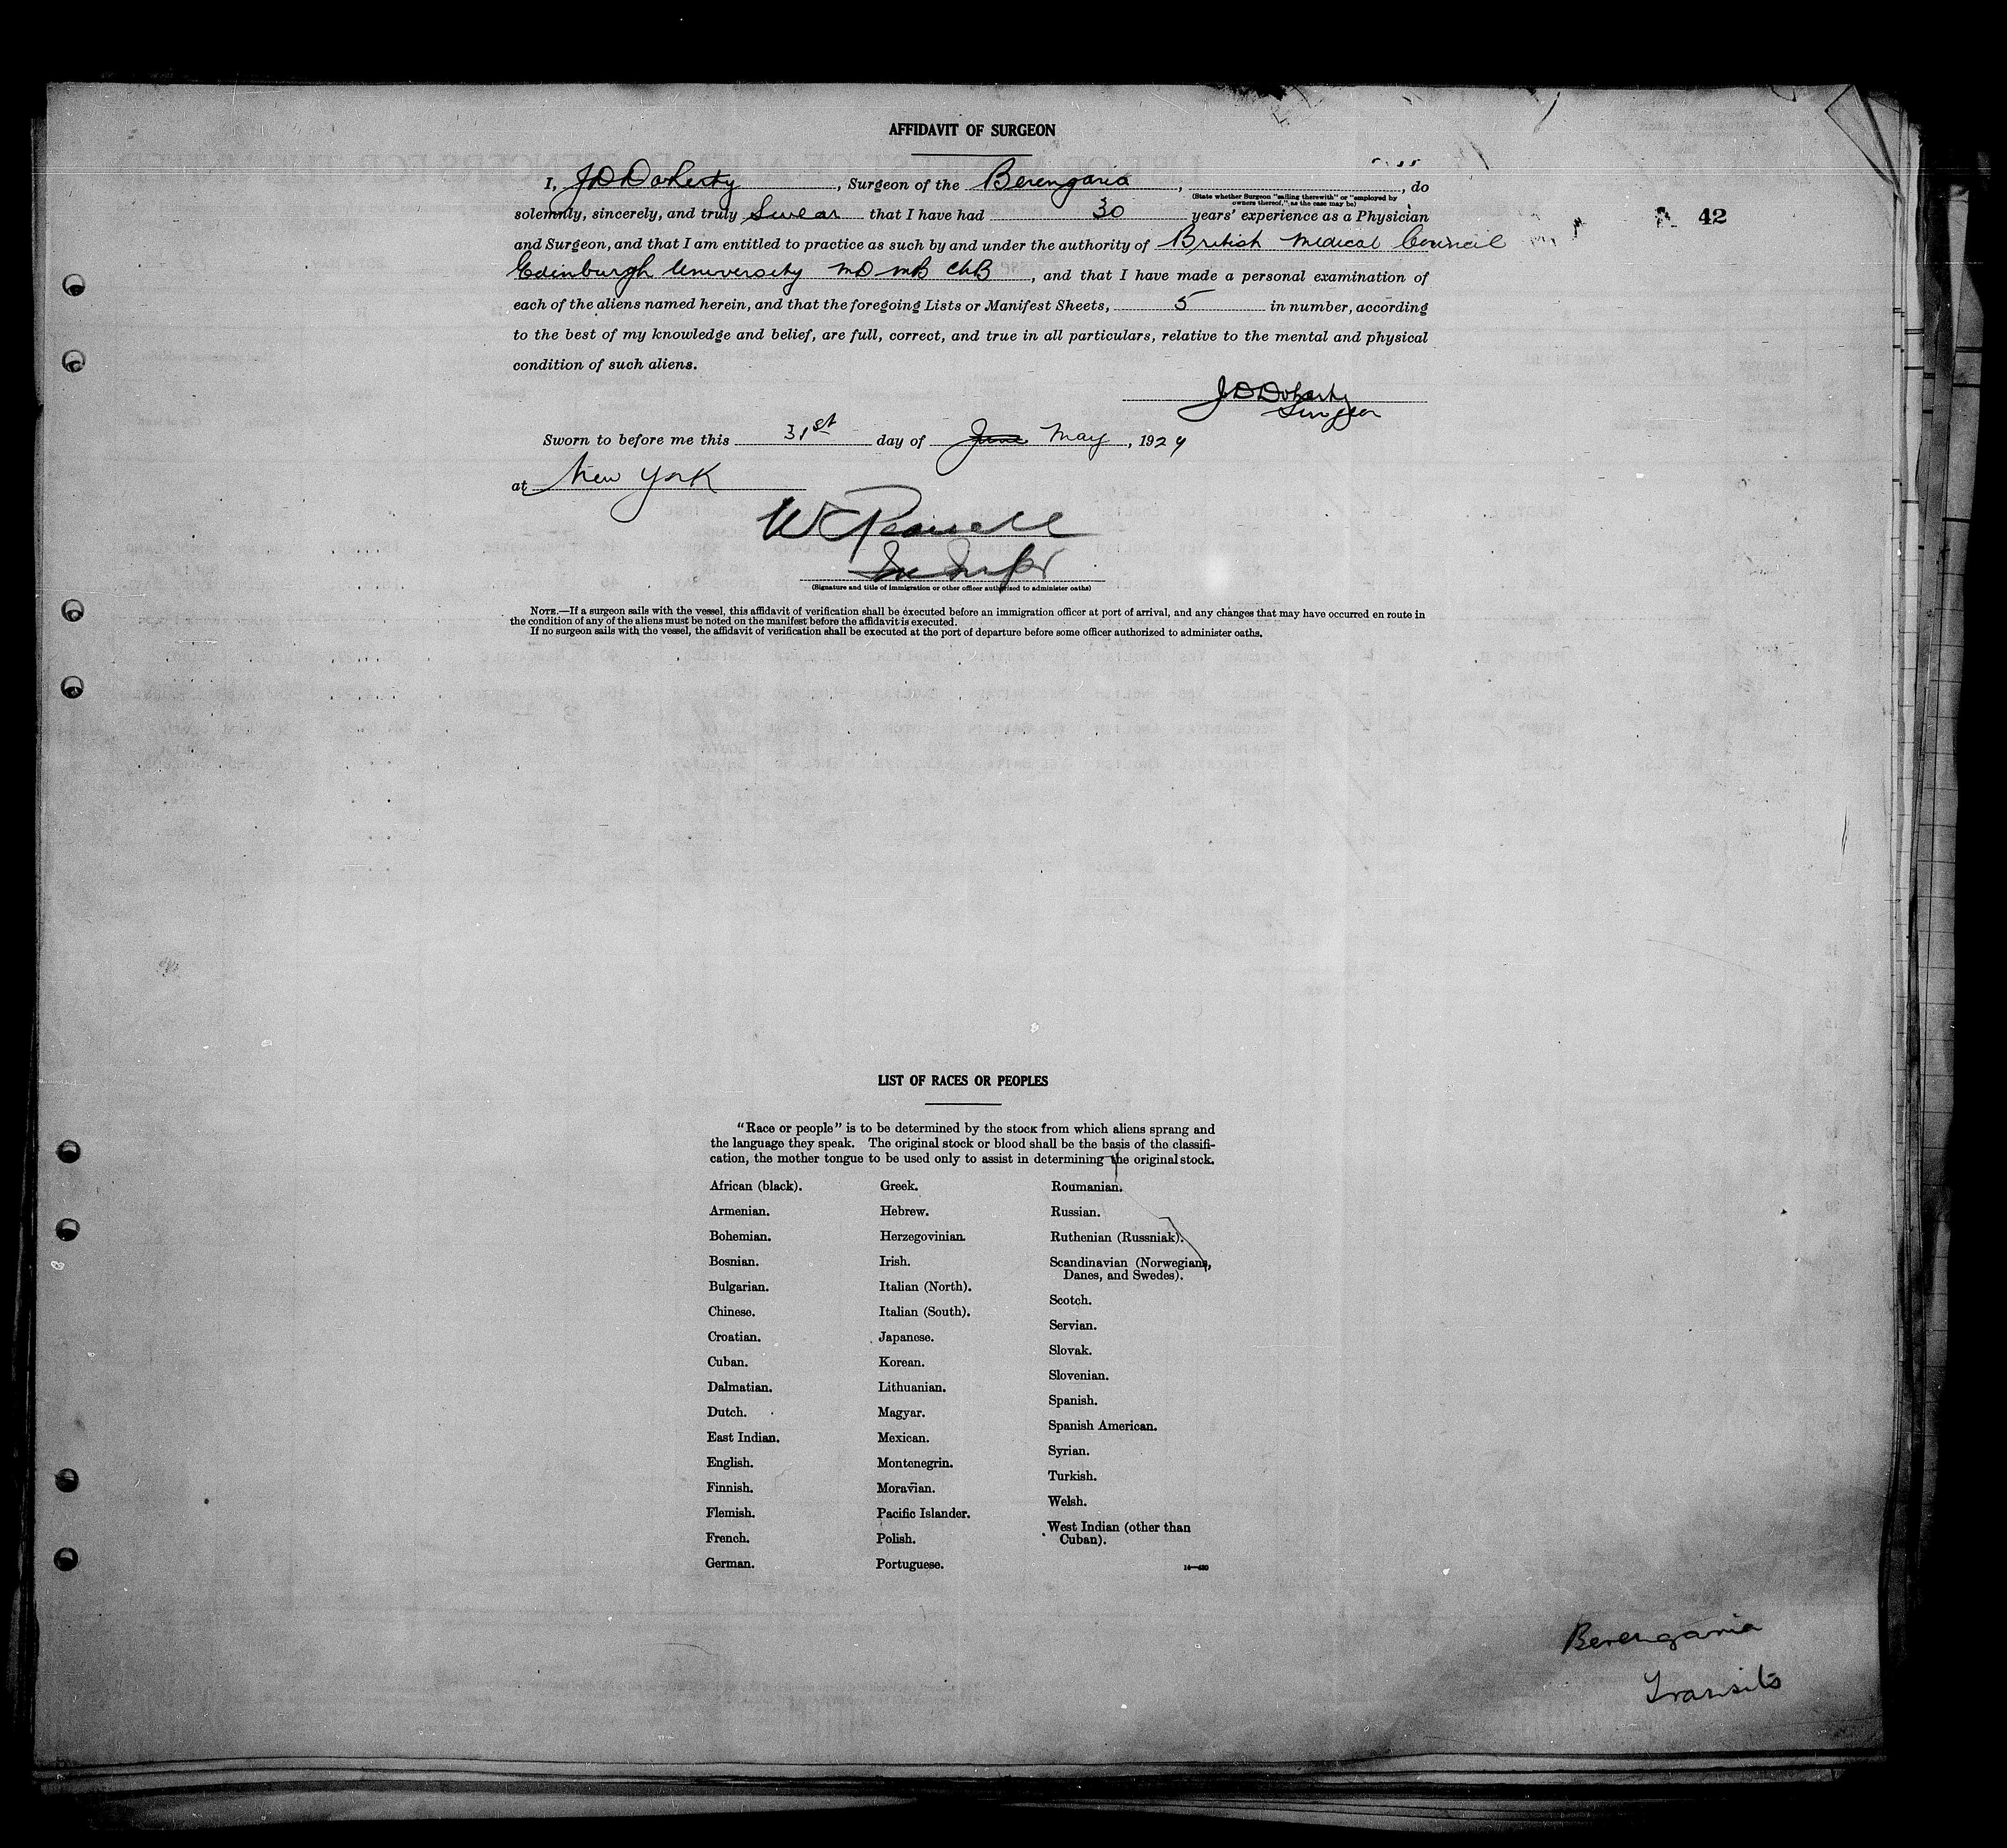 AFFIDAVIT OF SURGEON
I, J D Doherty, Surgeon of the Berengaria, , do
(State whether Surgeon "sailing therewith" or "employed by
owners thereof," as the case may be)
solemnly, sincerely, and truly Swear that I have had 30 years' experience as a Physician
42
and Surgeon, and that I am entitled to practice as such by and under the authority of British Medical Council
Edinburgh University MD MB ChB, and that I have made a personal examination of
each of the aliens named herein, and that the foregoing Lists or Manifest Sheets, 5 in number, according
to the best of my knowledge and belief, are full, correct, and true in all particulars, relative to the mental and physical
condition of such aliens.
J D Doherty
Surgeon
Sworn to before me this 31st day of June May, 1924
at New York
(Signature and title of immigration or other officer authorized to administer oaths)
NOTE.—If a surgeon sails with the vessel, this affidavit of verification shall be executed before an immigration officer at port of arrival, and any changes that may have occurred en route in
the condition of any of the aliens must be noted on the manifest before the affidavit is executed.
If no surgeon sails with the vessel, the affidavit of verification shall be executed at the port of departure before some officer authorized to administer oaths.
LIST OF RACES OR PEOPLES
"Race or people" is to be determined by the stock from which aliens sprang and
the language they speak. The original stock or blood shall be the basis of the classifi-
cation, the mother tongue to be used only to assist in determining the original stock.
African (black).
Armenian.
Bohemian.
Bosnian.
Bulgarian.
Chinese.
Croatian.
Cuban.
Dalmatian.
Dutch.
East Indian.
English.
Finnish.
Flemish.
French.
German.
Greek.
Hebrew.
Herzegovinian.
Irish.
Italian (North).
Italian (South).
Japanese.
Korean.
Lithuanian.
Magyar.
Mexican.
Montenegrin.
Moravian.
Pacific Islander.
Polish.
Portuguese.
Roumanian.
Russian.
Ruthenian (Russniak).
Scandinavian (Norwegians,
Danes, and Swedes).
Scotch.
Servian.
Slovak.
Slovenian.
Spanish.
Spanish American.
Syrian.
Turkish.
Welsh.
West Indian (other than
Cuban).
Berengaria
Transits